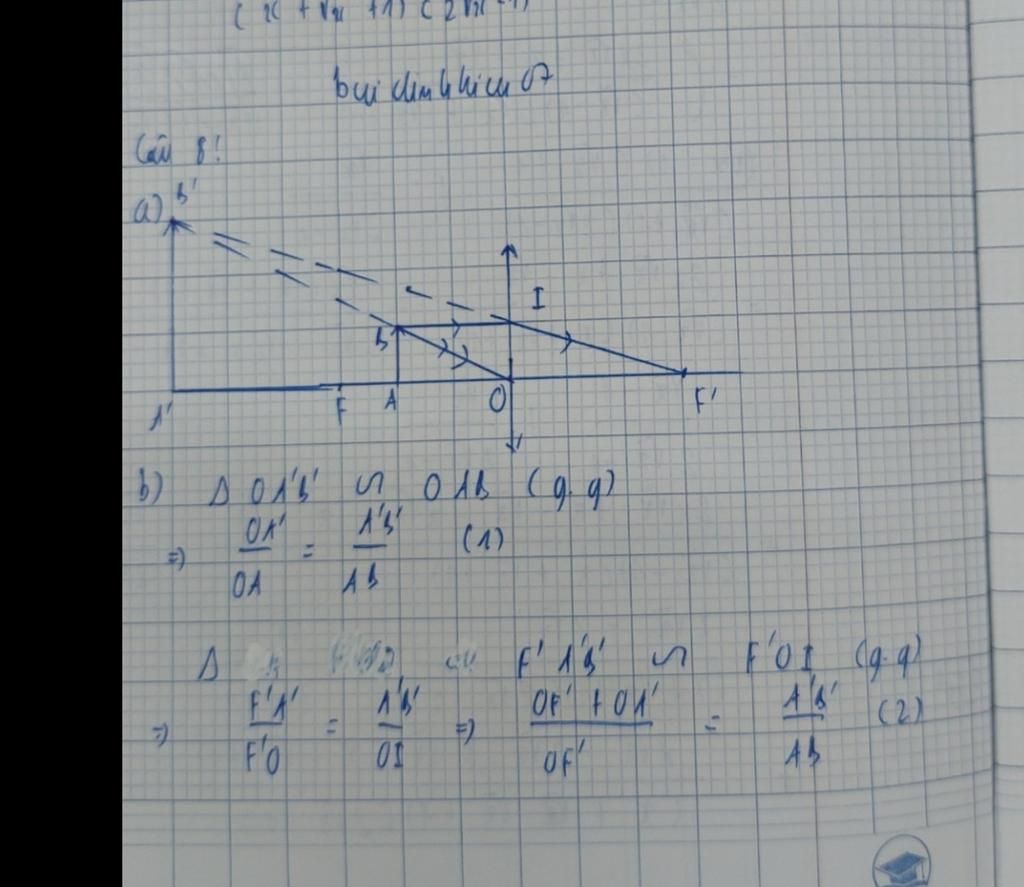 ( x + √x + 1) ( 2√x - 1)
Câu 8!
a) B'
I
B
A' F A O F'
b) Δ OA'B' ∽ OAB (g.g)
=> OA'/OA = A'B'/AB (1)
Δ F'A'B' ∽ F'OI (g.g)
=> F'A'/F'O = A'B'/OI => OF' + OA'/OF' = A'B'/AB (2)